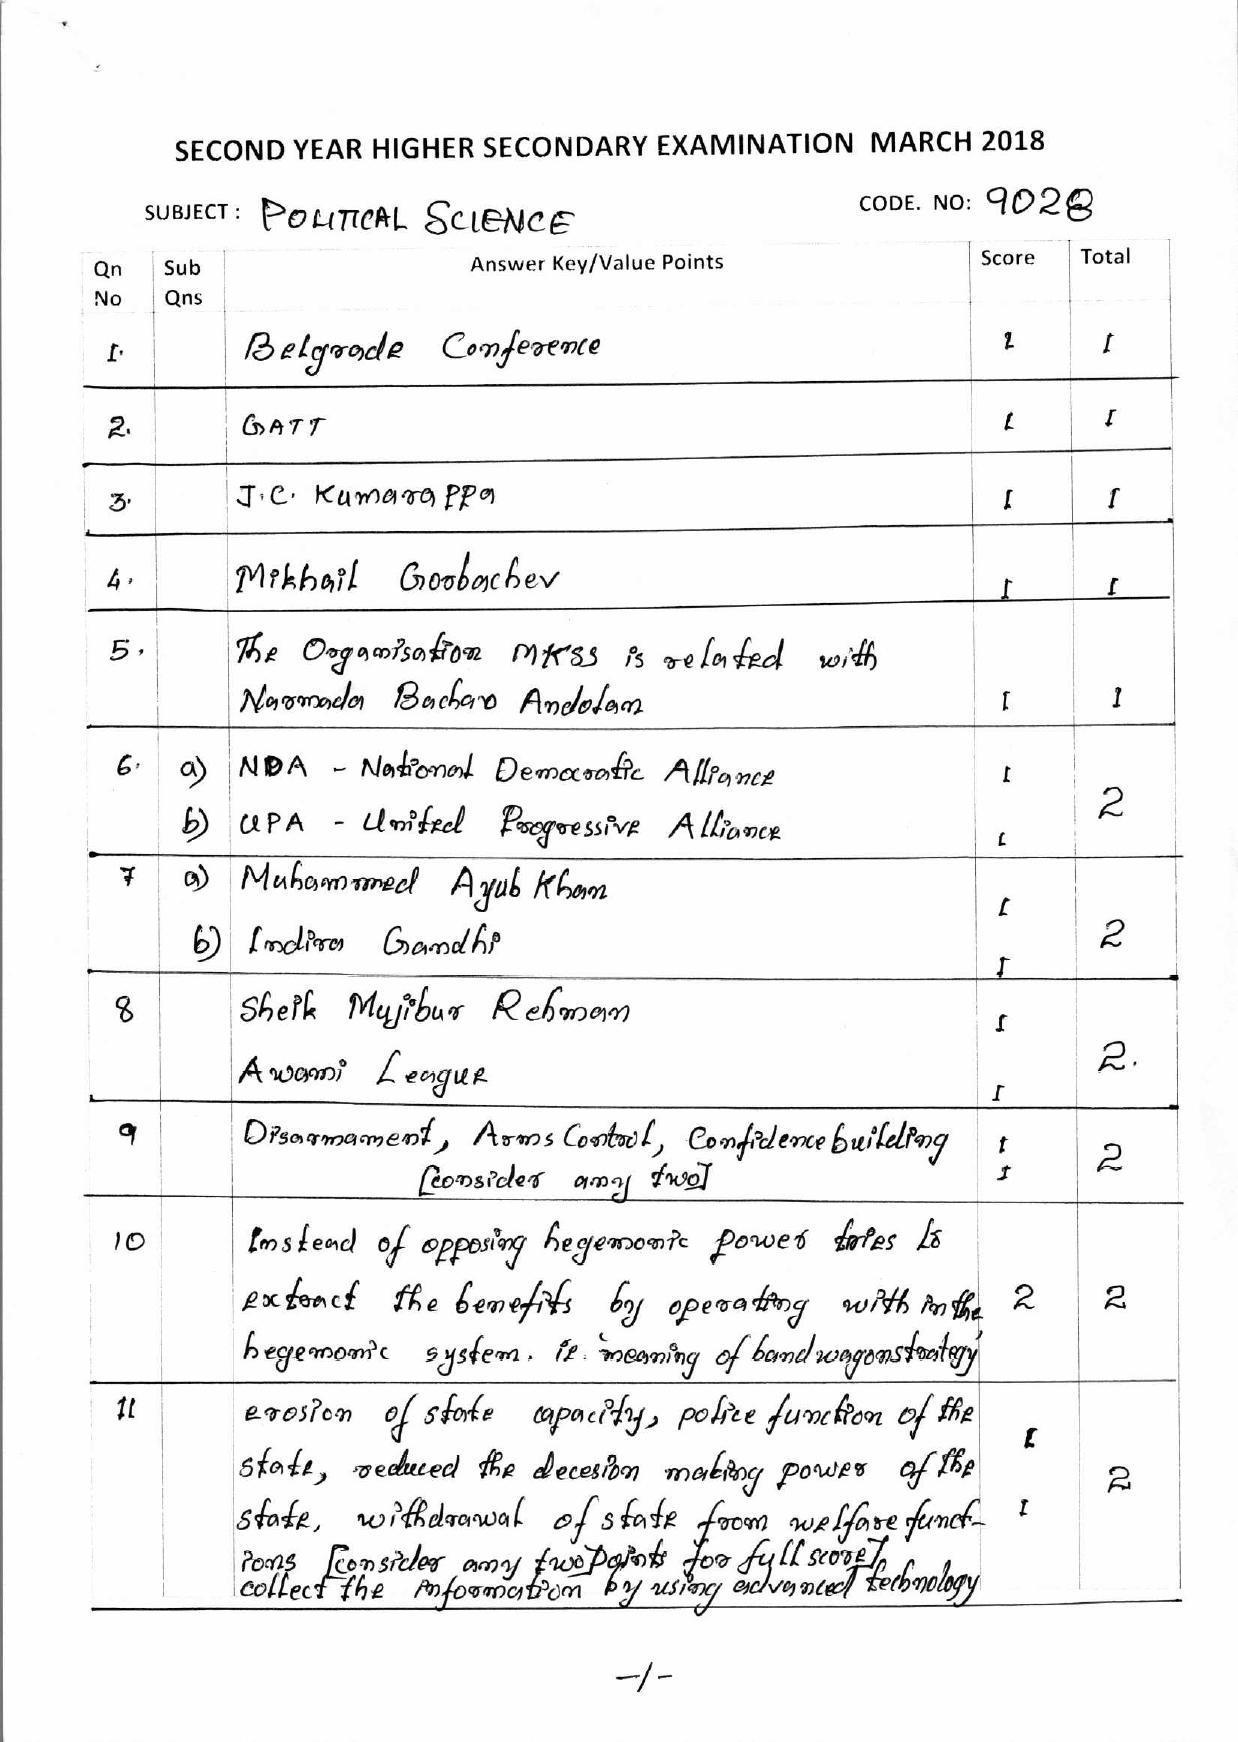 SECOND YEAR HIGHER SECONDARY EXAMINATION MARCH 2018
SUBJECT : POLITICAL SCIENCE CODE. NO: 9028
Qn No Sub Qns Answer Key/Value Points Score Total
1. Belgrade Conference 1 1
2. GATT 1 1
3. J.C. Kumarappa 1 1
4. Mikhail Gorbachev 1 1
5. The Organisation MKSS is related with
Narmada Bachao Andolan 1 1
6. a) NDA - National Democratic Alliance 1
2
b) UPA - United Progressive Alliance 1
7 a) Muhammed Ayub Khan 1
b) Indira Gandhi 2
1
8 Sheik Mujibur Rehman 1
2.
Awami League 1
9 Disarmament, Arms Control, Confidence building 1 2
[consider any two] 1
10 Instead of opposing hegemonic power tries to
extract the benefits by operating with in the 2 2
hegemonic system. ie. meaning of bandwagon strategy
11 erosion of state capacity, police function of the
1
state, reduced the decesion making power of the
2
state, withdrawal of state from welfare funct- 1
ions [consider any two points for full score],
collect the information by using advanced technology
-1-